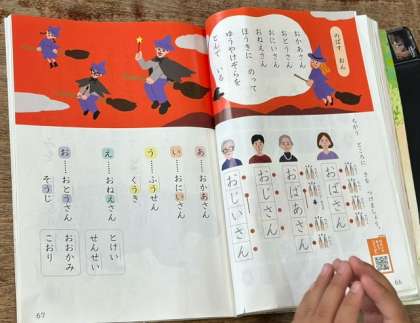 のばす おん
おかあさん
おとうさん
おにいさん
おねえさん
ほうきに のって
ゆうやけぞらを
とんで いる
ちがう ところに きを つけましょう。
おばさん
おばあさん
おじさん
おじいさん
66
あ……おかあさん
い……おにいさん
う……ふうせん
くうき
え……おねえさん
お……おとうさん
そうじ
とけい
せんせい
おおかみ
こおり
67